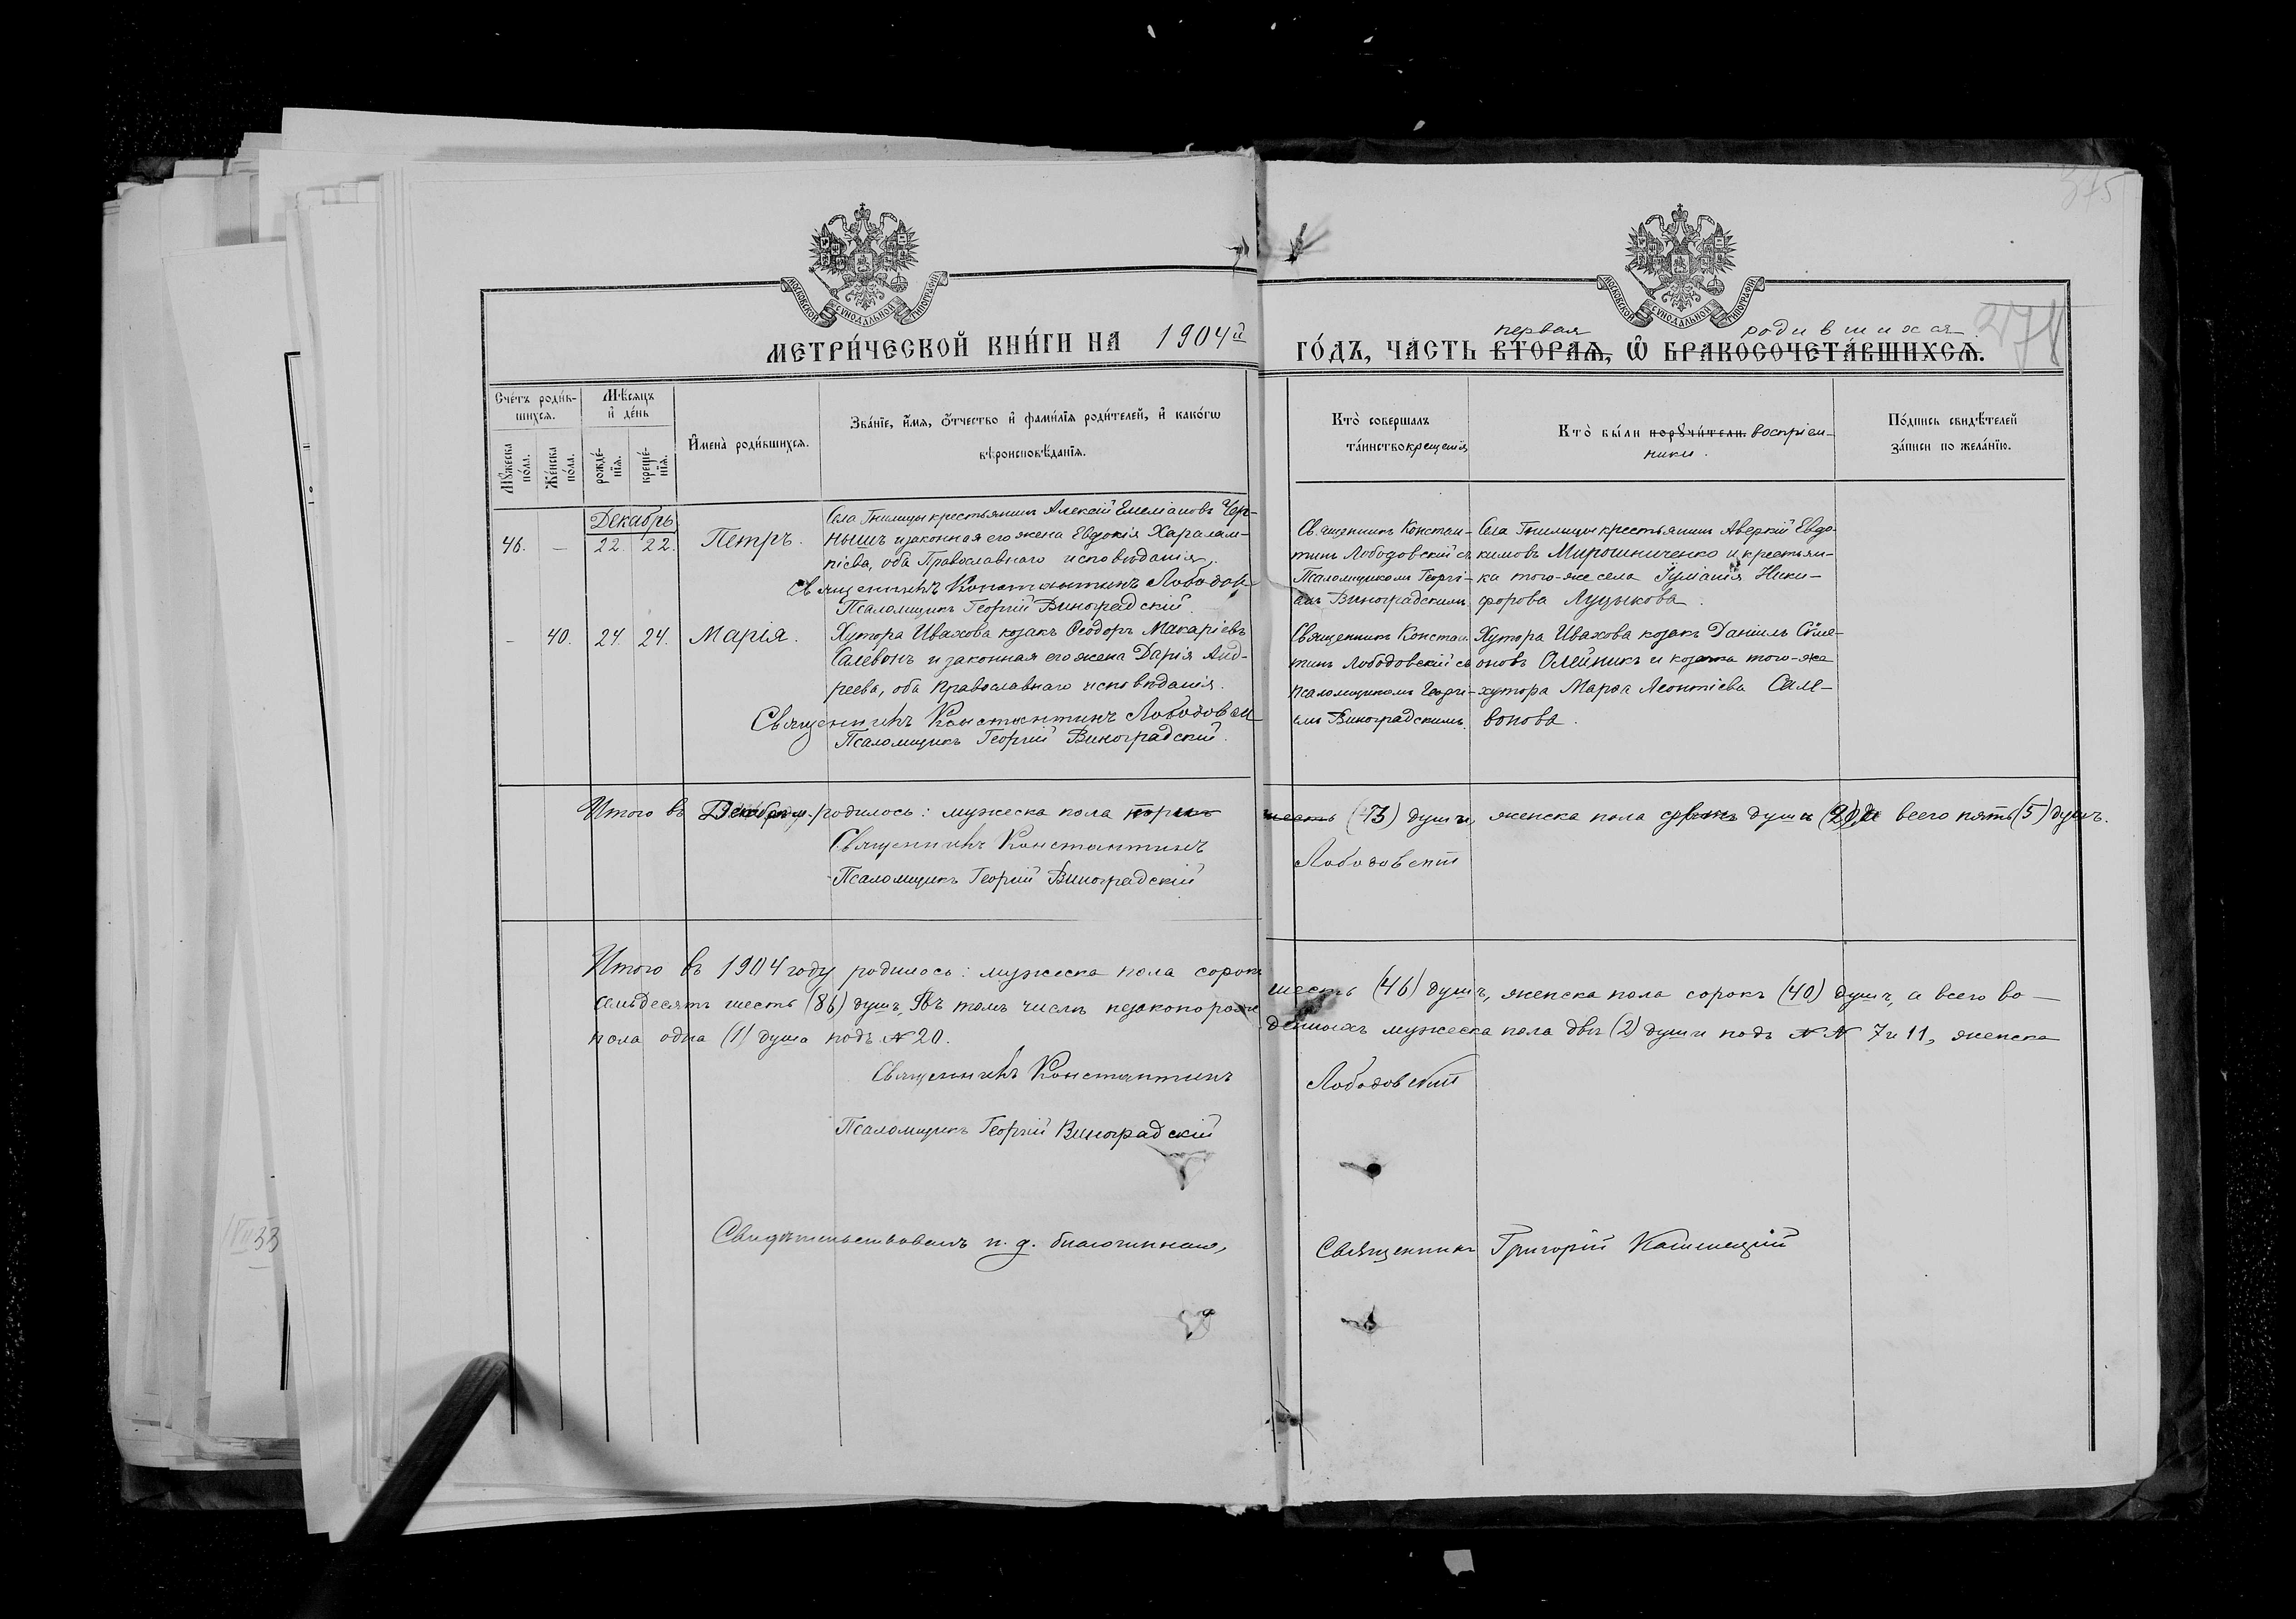 375
МОСКОВСКОЙ СУНОДАЛЬНОЙ ТИПОГРАФІИ
МОСКОВСКОЙ СУНОДАЛЬНОЙ ТИПОГРАФІИ
МЕТРИ́ЧЕСКОЙ КНИ́ГИ НА 1904й
первая родившихся
ГО́ДЪ, ЧА́СТЬ ВТОРАѦ, Ѿ БРАКОСОЧЕТА́ВШИХСѦ.
278
Сче́тъ роди́в-
шихсѧ.
Мꙋжеска
по́ла.
Же́нска
по́ла.
Мѣ́сѧцъ
и҆ де́нь
рожде́-
нїѧ.
креще́-
нїѧ.
И҆мена̀ роди́вшихсѧ.
Зва́нїе, и҆́мѧ, ѻ҆́тчество и҆ фами́лїѧ роди́телей, и҆ како́гѡ
вѣроисповѣ́данїѧ.
Кто̀ совершалъ
та́инство крещенія
Кто̀ бы́ли порꙋчи́тели. воспріем-
ники.
По́дпись свидѣ́телей
за́писи по жела́нїю.
Декабрь
46. — 22. 22. Петръ.
Села Гнилицы крестьянинъ Алексій Емеліановъ Чер-
нышъ и законная его жена Евдокія Харалам-
піева, оба Православнаго исповѣданія.
Священникъ Константинъ Лободов
Псаломщикъ Георгій Виноградскій.
Священникъ Констан-
тинъ Лободовскій съ
Псаломщикомъ Георгі-
емъ Виноградскимъ
Села Гнилицы крестьянинъ Аверкій Евдо-
кимовъ Мирошниченко и крестьян-
ка того-же села Іуліанія Ники-
форова Луцыкова.
— 40. 24. 24. Марія.
Хутора Ивахова козакъ Ѳеодоръ Макаріевъ
Салевонъ и законная его жена Дарія Анд-
реева, оба православнаго исповѣданія.
Священникъ Константинъ Лободовскі
Псаломщикъ Георгій Виноградскій.
Священникъ Констан
тинъ Лободовскій съ
псаломщикомъ Георгі-
емъ Виноградскимъ.
Хутора Ивахова козакъ Даніилъ Симе-
оновъ Олейникъ и козачка того-же
хутора Марѳа Леонтіева Сале-
вонова.
Итого въ Декабрѣ родилось: мужеска пола (3) души, женска пола души (2), а всего пять (5) душъ.
Священникъ Константинъ Лободовскій
Псаломщикъ Георгій Виноградскій
Итого въ 1904 году родилось: мужеска пола сорокъ шесть (46) душъ, женска пола сорокъ (40) душъ, а всего во-
семьдесятъ шесть (86) душъ. Въ томъ числѣ незаконорожденныхъ мужеска пола двѣ (2) души подъ № № 7 и 11, женска
пола одна (1) душа подъ № 20.
Священникъ Константинъ Лободовскій
Псаломщикъ Георгій Виноградскій
Свидѣтельствовалъ и. д. благочиннаго, Священникъ Григорій